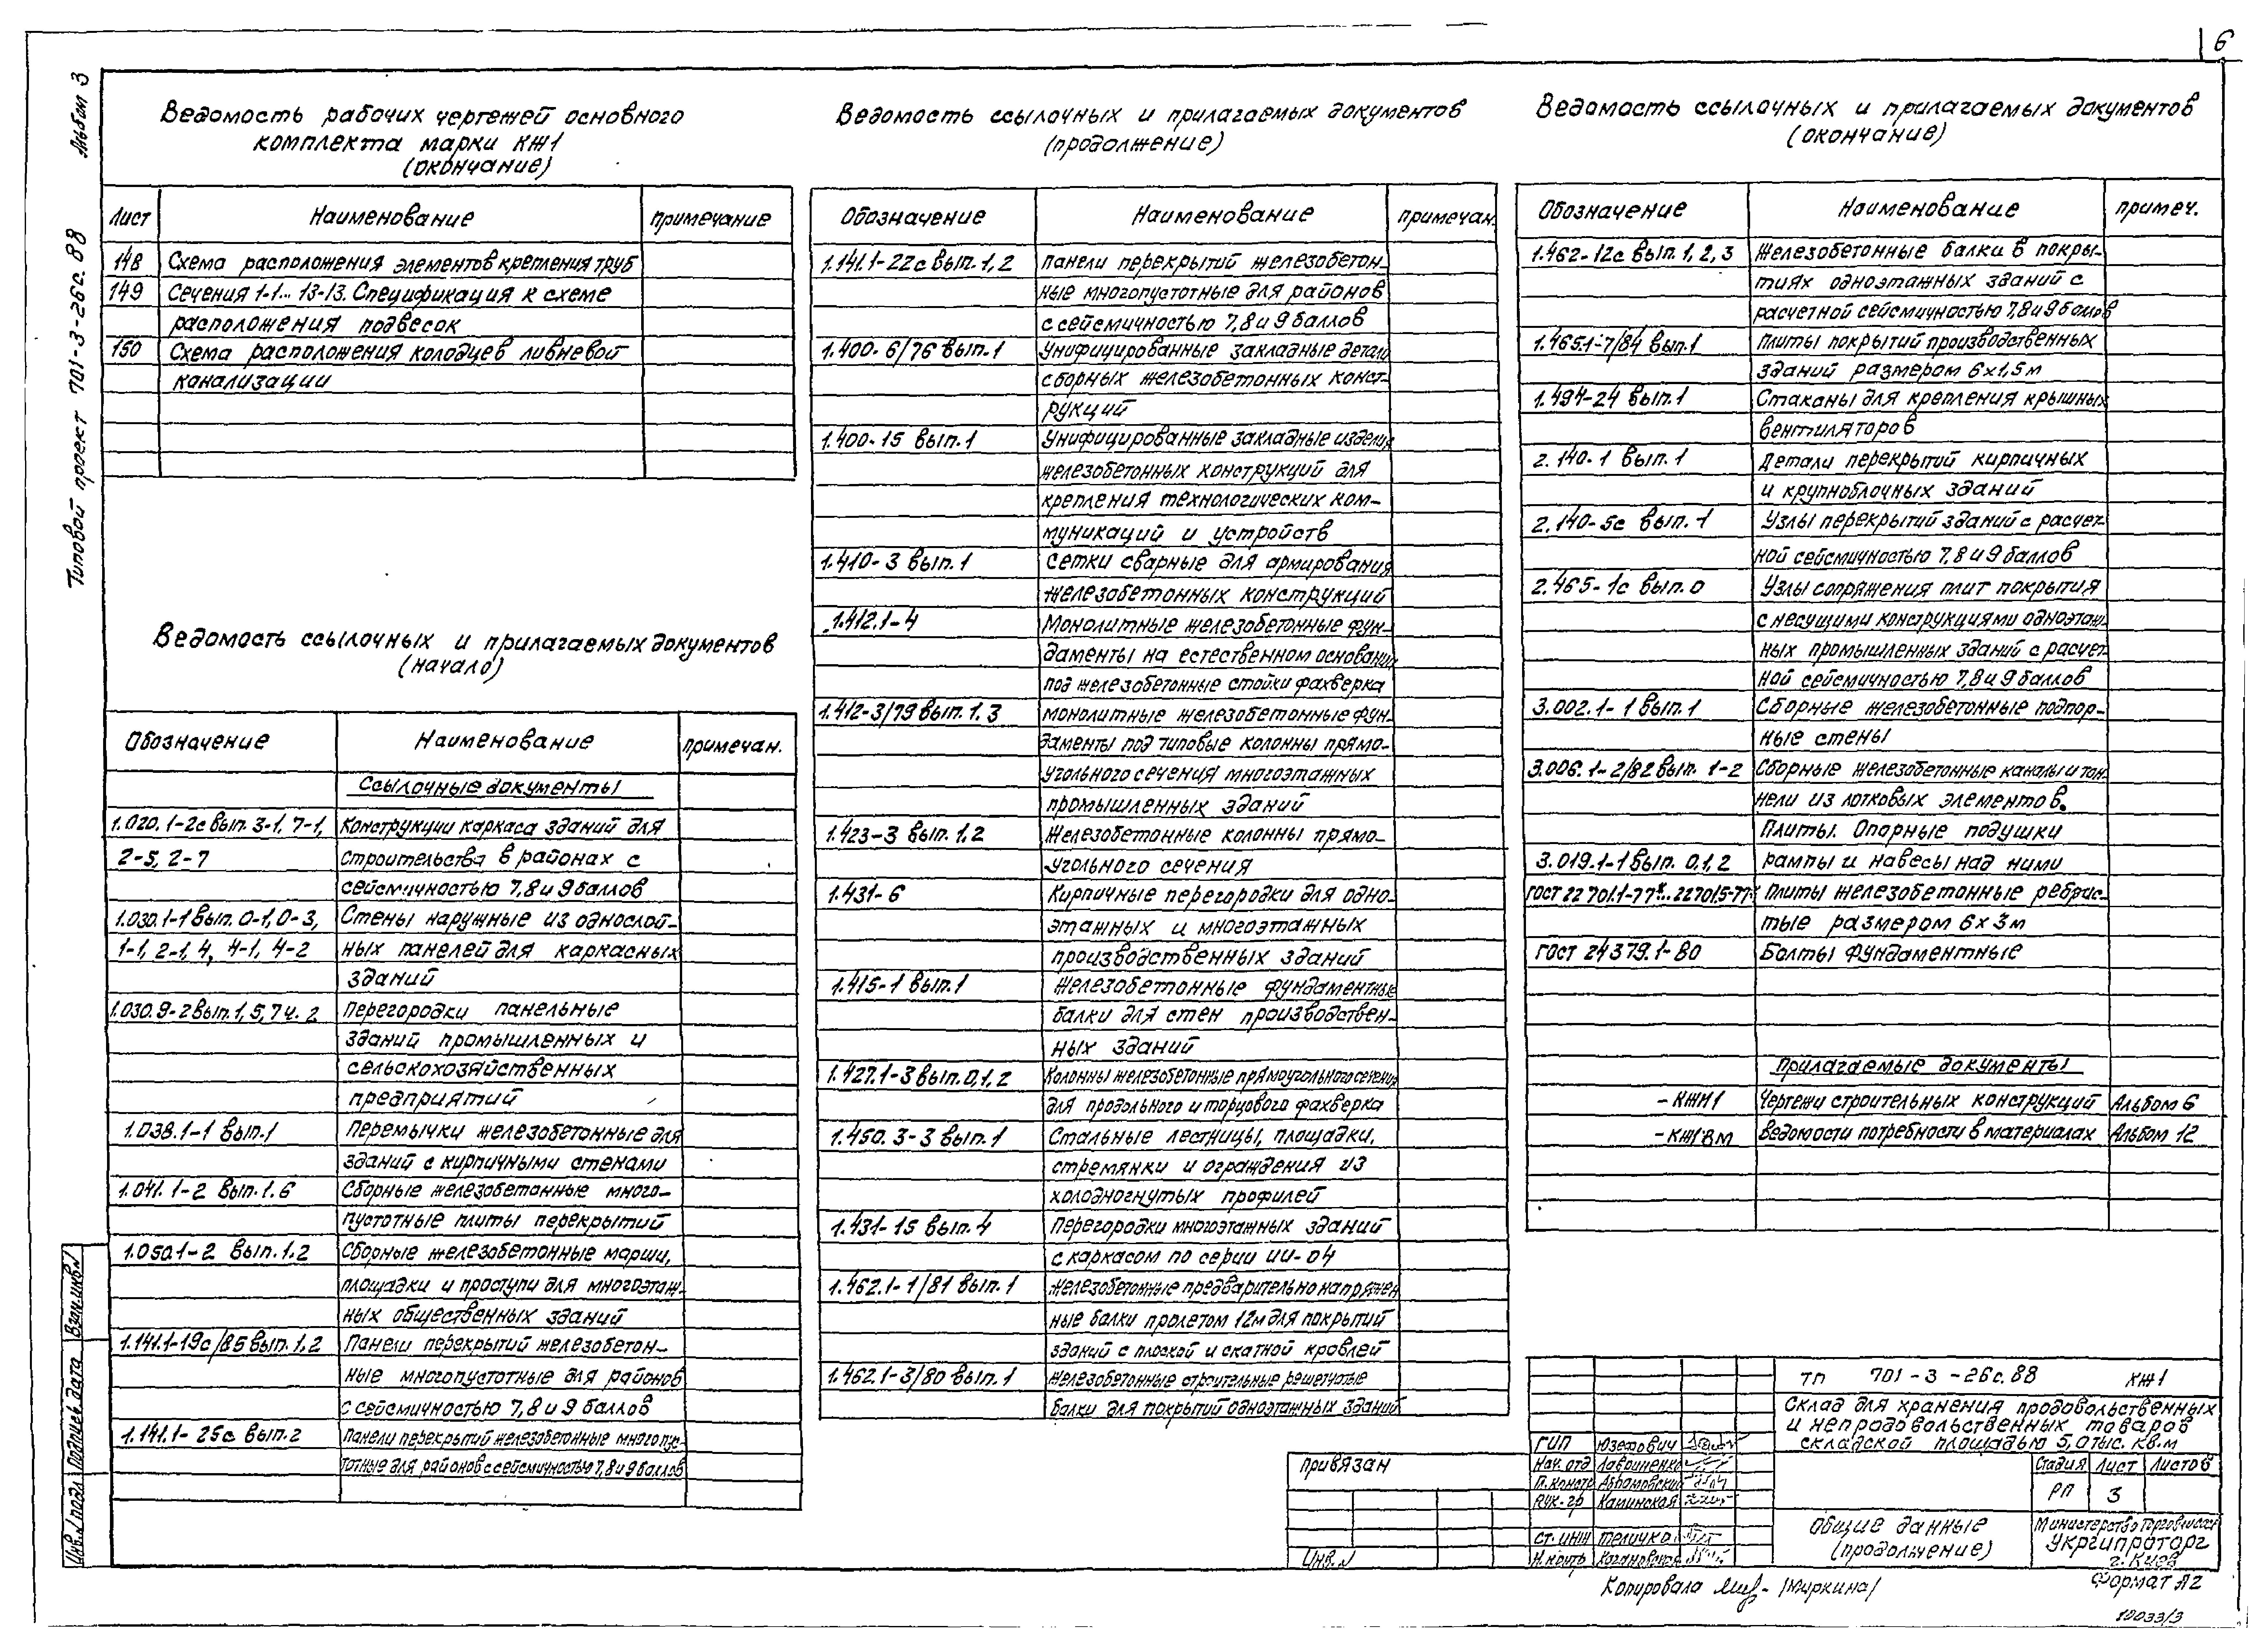 6
Альбом 3
Типовой проект 701-3-26с.88
Ведомость рабочих чертежей основного
комплекта марки КЖ1
(окончание)
Лист Наименование Примечание
148 Схема расположения элементов крепления труб
149 Сечения 1-1... 13-13. Спецификация к схеме
расположения подвесок
150 Схема расположения колодцев ливневой
канализации
Ведомость ссылочных и прилагаемых документов
(начало)
Обозначение Наименование Примечан.
Ссылочные документы
1.020.1-2с вып. 3-1, 7-1, Конструкции каркаса зданий для
2-5, 2-7 строительства в районах с
сейсмичностью 7,8 и 9 баллов
1.030.1-1 вып. 0-1, 0-3, Стены наружные из однослой-
1-1, 2-1, 4, 4-1, 4-2 ных панелей для каркасных
зданий
1.030.9-2 вып. 1, 5, 7 ч. 2 Перегородки панельные
зданий промышленных и
сельскохозяйственных
предприятий
1.038.1-1 вып.1 Перемычки железобетонные для
зданий с кирпичными стенами
1.041.1-2 вып. 1.6 Сборные железобетонные много-
пустотные плиты перекрытий
1.050.1-2 вып. 1.2 Сборные железобетонные марши,
площадки и проступи для многоэтаж-
ных общественных зданий
1.141.1-19с/85 вып. 1, 2 Панели перекрытий железобетон-
ные многопустотные для районов
с сейсмичностью 7,8 и 9 баллов
1.141.1-25с вып.2 Панели перекрытий железобетонные многопус-
тотные для районов с сейсмичностью 7,8 и 9 баллов
Ведомость ссылочных и прилагаемых документов
(продолжение)
Обозначение Наименование Примечан.
1.141.1-22с вып. 1, 2 Панели перекрытий железобетон-
ные многопустотные для районов
с сейсмичностью 7,8 и 9 баллов
1.400-6/76 вып.1 Унифицированные закладные детали
сборных железобетонных конст-
рукций
1.400-15 вып.1 Унифицированные закладные изделия
железобетонных конструкций для
крепления технологических ком-
муникаций и устройств
1.410-3 вып.1 Сетки сварные для армирования
железобетонных конструкций
1.412.1-4 Монолитные железобетонные фун-
даменты на естественном основании
под железобетонные стойки фахверка
1.412-3/79 вып. 1.3 Монолитные железобетонные фун-
даменты под типовые колонны прямо-
угольного сечения многоэтажных
промышленных зданий
1.423-3 вып. 1,2 Железобетонные колонны прямо-
угольного сечения
1.431-6 Кирпичные перегородки для одно-
этажных и многоэтажных
производственных зданий
1.415-1 вып.1 Железобетонные фундаментные
балки для стен производствен-
ных зданий
1.427.1-3 вып.0,1,2 Колонны железобетонные прямоугольного сечения
для продольного и торцового фахверка
1.450.3-3 вып.1 Стальные лестницы, площадки,
стремянки и ограждения из
холодногнутых профилей
1.431-15 вып. 4 Перегородки многоэтажных зданий
с каркасом по серии ИИ-04
1.462.1-1/81 вып.1 Железобетонные предварительно напряжен
ные балки пролетом 12м для покрытий
зданий с плоской и скатной кровлей
1.462.1-3/80 вып.1 Железобетонные стропильные решетчатые
балки для покрытий одноэтажных зданий
Ведомость ссылочных и прилагаемых документов
(окончание)
Обозначение Наименование Примеч.
1.462-12с вып. 1, 2, 3 Железобетонные балки в покры-
тиях одноэтажных зданий с
расчетной сейсмичностью 7,8 и 9 баллов
1.465.1-7/84 вып.1 Плиты покрытий производственных
зданий размером 6х1,5м
1.494-24 вып.1 Стаканы для крепления крышных
вентиляторов
2.140-1 вып.1 Детали перекрытий кирпичных
и крупноблочных зданий
2.140-5с вып.-1 Узлы перекрытий зданий с расчет-
ной сейсмичностью 7,8 и 9 баллов
2.465-1с вып.0 Узлы сопряжения плит покрытия
с несущими конструкциями одноэтаж-
ных промышленных зданий с расчет-
ной сейсмичностью 7,8 и 9 баллов
3.002.1-1 вып.1 Сборные железобетонные подпор-
ные стены
3.006.1-2/82 вып. 1-2 Сборные железобетонные каналы и тон-
нели из лотковых элементов.
Плиты. Опорные подушки
3.019.1-1 вып. 0,1,2 рампы и навесы над ними
ГОСТ 22701.1-77*... 22701.5-77* Плиты железобетонные ребрис-
тые размером 6х3м
ГОСТ 24379.1-80 Болты фундаментные
Прилагаемые документы
-КЖИ1 Чертежи строительных конструкций Альбом 6
-КЖ1ВМ Ведомости потребности в материалах Альбом 12
ТП 701-3-26с.88 КЖ1
Склад для хранения продовольственных
и непродовольственных товаров
складской площадью 5,0 тыс. кв.м
ГИП Юзефович
Нач. отд Лавриненко
Гл. констр Абрамовский
Рук. гр Калинская
Ст. инж Теличко
Н. контр Кагановская
Стадия Лист Листов
РП 3
Общие данные
(продолжение)
Министерство Торговли СССР
Укргипроторг
г. Киев
Привязан
Инв. N
Взам. инв. N
Подпись и дата
Инв. N подл
Копировала (Миркина)
Формат А2
10033/3